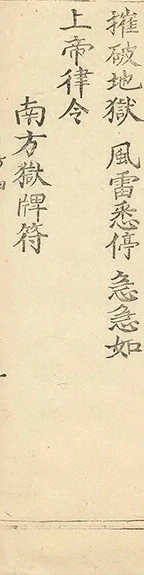 摧破地獄 風雷悉停 急急如
上帝律令
南方獄牌符